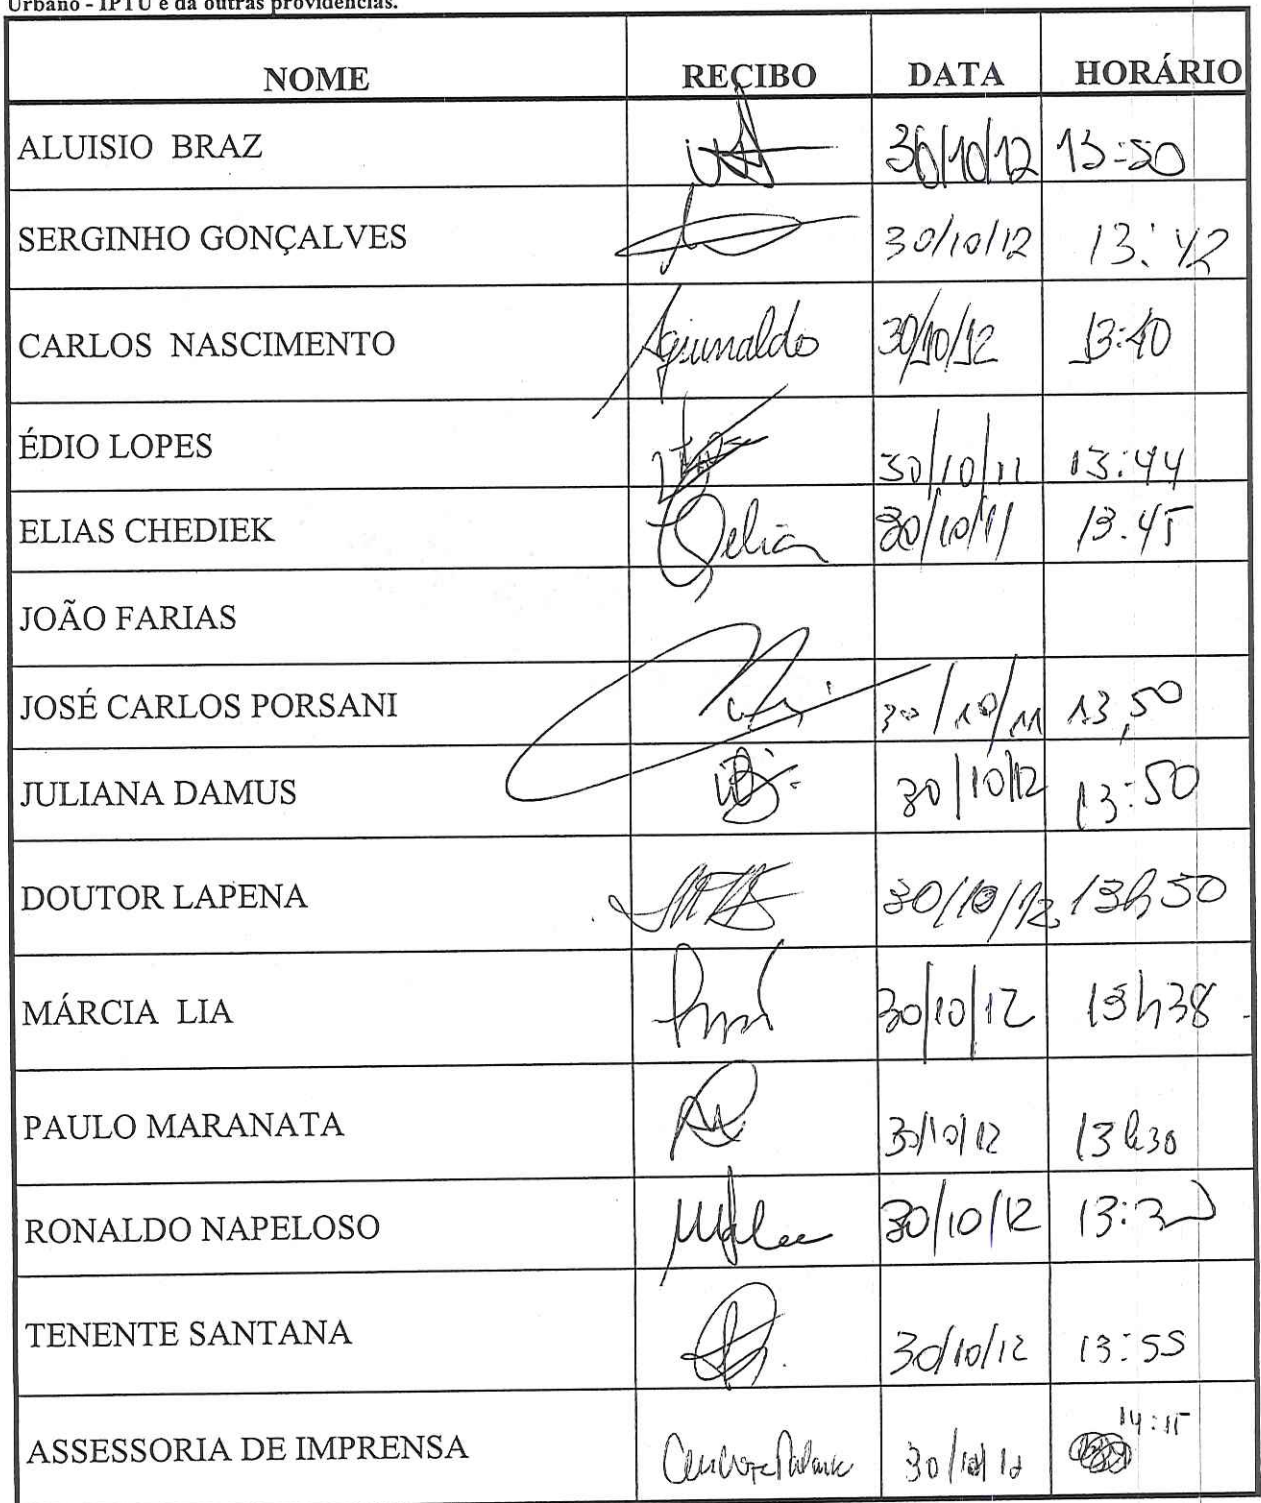 Urbano - IPTU e dá outras providências.
NOME RECIBO DATA HORÁRIO
ALUISIO BRAZ 30/10/12 13:50
SERGINHO GONÇALVES 30/10/12 13:42
CARLOS NASCIMENTO Aguinaldo 30/10/12 13:40
ÉDIO LOPES 30/10/11 13:44
ELIAS CHEDIEK 30/10/11 13.45
JOÃO FARIAS
JOSÉ CARLOS PORSANI 30/10/11 13,50
JULIANA DAMUS 30/10/12 13:50
DOUTOR LAPENA 30/10/12 13h50
MÁRCIA LIA 30/10/12 13h38
PAULO MARANATA 30/10/12 13h30
RONALDO NAPELOSO 30/10/12
TENENTE SANTANA 30/10/12 13:55
ASSESSORIA DE IMPRENSA 30/10/12 14:15